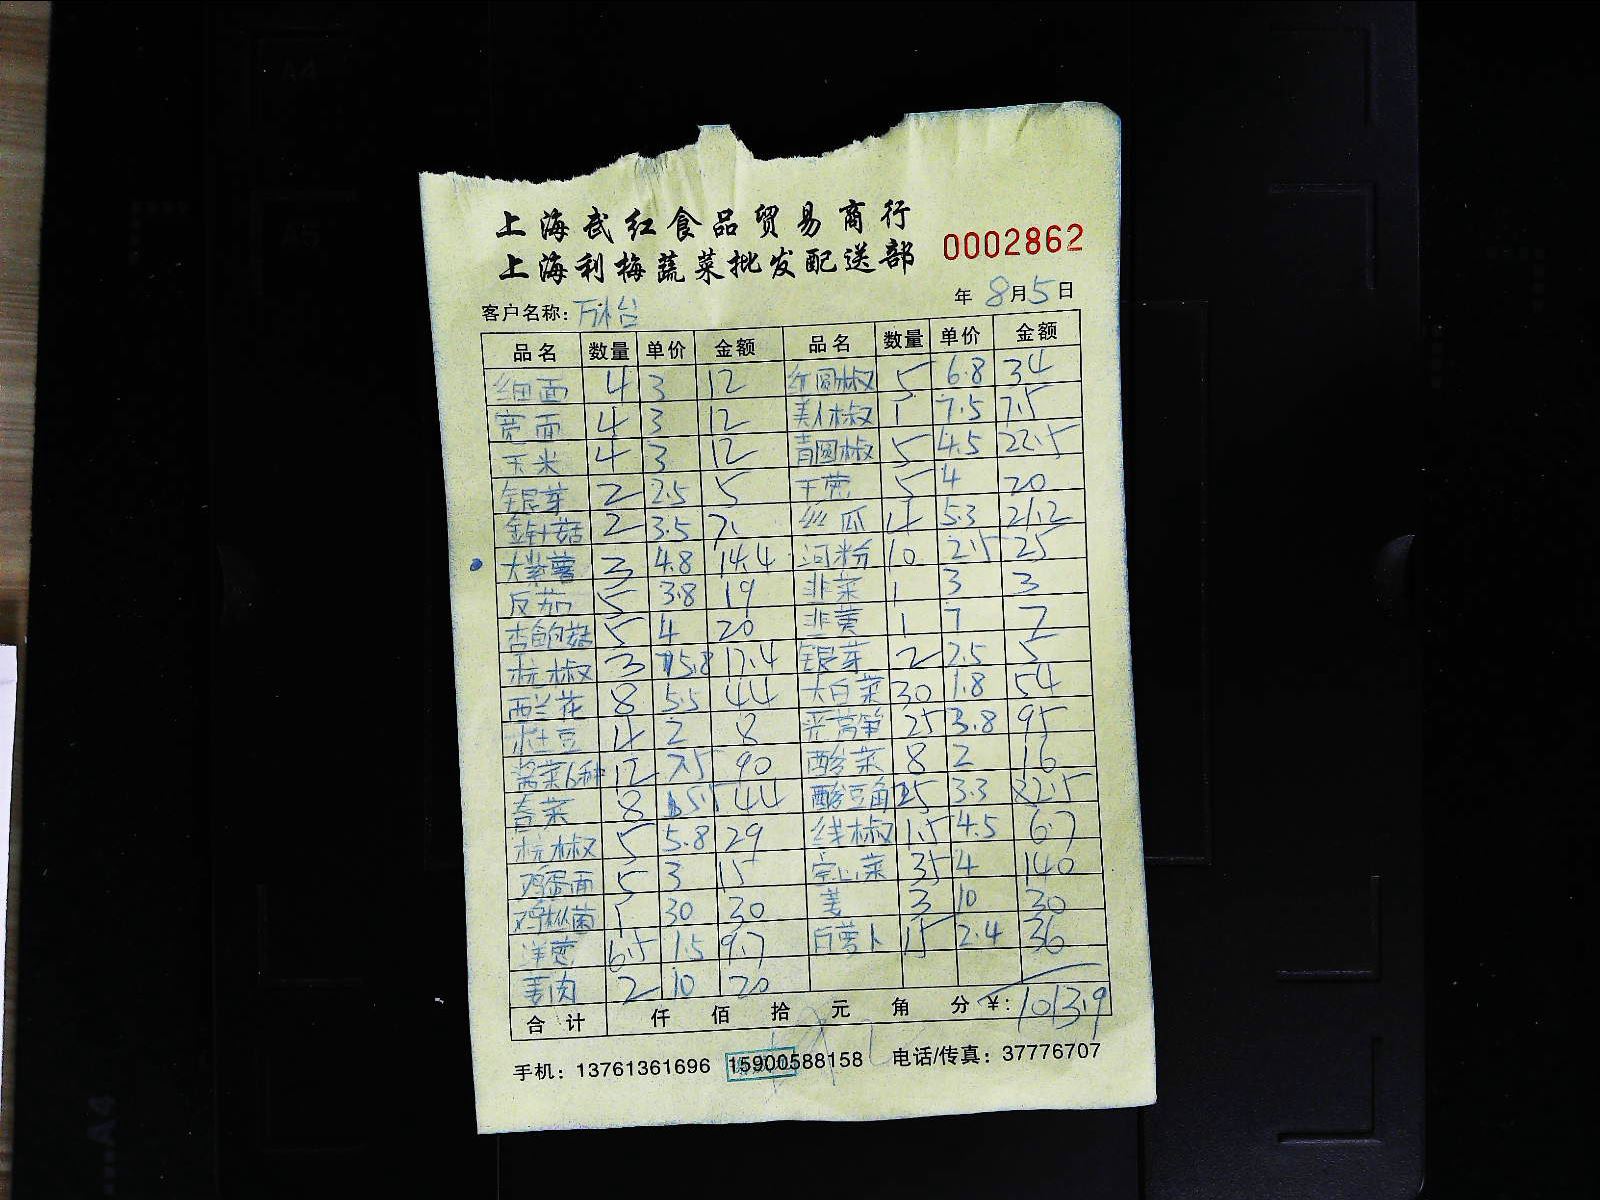 上海武红食品贸易商行
上海利梅蔬菜批发配送部 0002862
客户名称: 万怡 年 8月5日
品名 数量 单价 金额 品名 数量 单价 金额
细面 4 3 12 红圆椒 5 6.8 34
宽面 4 3 12 美人椒 1 7.5 7.5
玉米 4 3 12 青圆椒 5 4.5 22.5
银芽 2 2.5 5 干葱 5 4 20
金针菇 2 3.5 7. 丝瓜 4 5.3 21.2
大紫薯 3 4.8 14.4 河粉 10 2.5 25
反茄 5 3.8 19 韭菜 1 3 3
杏鲍菇 5 4 20 韭黄 1 7 7
杭椒 3 5.8 17.4 银芽 2 2.5 5
西兰花 8 5.5 44 大白菜 30 1.8 54
土豆 4 2 8 莴笋 25 3.8 95
酱菜6种 12 7.5 90 酸菜 8 2 16
8 5.5 44 酸豆角 25 3.3 82.5
杭椒 5 5.8 29 线椒 1.5 4.5 6.7
鸡蛋面 5 3 15 空心菜 35 4 140
鸡枞菌 1 30 30 姜 3 10 30
洋葱 6.5 1.5 9.7 白萝卜 15 2.4 36
姜肉 2 10 20
合计 仟 佰 拾 元 角 分 ¥: 1013.9
手机: 13761361696 15900588158 电话/传真: 37776707